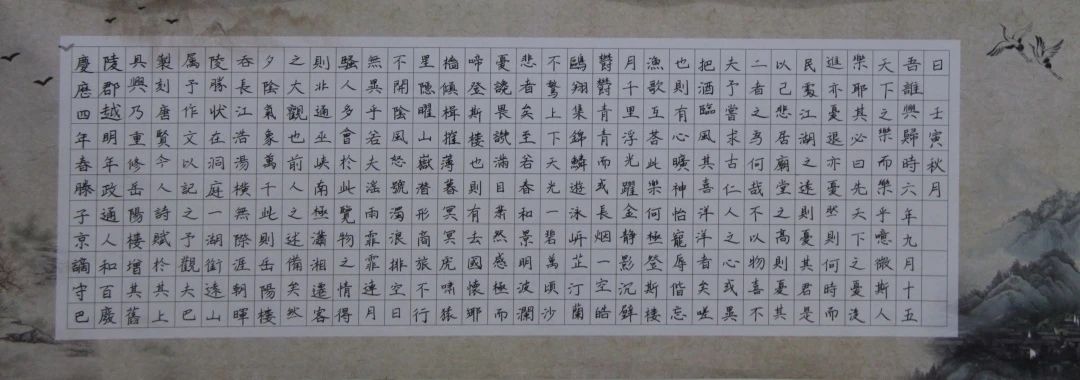 慶曆四年春滕子京謫守巴
陵郡越明年政通人和百廢
具興乃重修岳陽樓增其舊
製刻唐賢今人詩賦於其上
属予作文以記之予觀夫巴
陵勝狀在洞庭一湖銜遠山
吞長江浩湯橫無際涯朝暉
夕陰氣象萬千此則岳陽樓
之大觀也前人之述備矣然
則北通巫峽南極瀟湘遷客
騷人多會於此覽物之情得
無異乎若夫淫雨霏霏連月
不開陰風怒號濁浪排空日
星隱曜山嶽潛形商旅不行
檣傾楫摧薄暮冥冥虎嘯猿
啼登斯樓也則有去國懷鄉
憂讒畏譏滿目蕭然感極而
悲者矣至若春和景明波瀾
不驚上下天光一碧萬頃沙
鷗翔集錦鱗遊泳岸芷汀蘭
鬱鬱青青而或長烟一空皓
月千里浮光躍金靜影沉璧
漁歌互答此樂何極登斯樓
也則有心曠神怡寵辱偕忘
把酒臨風其喜洋洋者矣嗟
夫予嘗求古仁人之心或異
二者之為何哉不以物喜不
以己悲居廟堂之高則憂其
民處江湖之遠則憂其君是
進亦憂退亦憂然則何時而
樂耶其必曰先天下之憂後
天下之樂而樂乎噫微斯人
吾誰與歸時六年九月十五
日 壬寅秋月